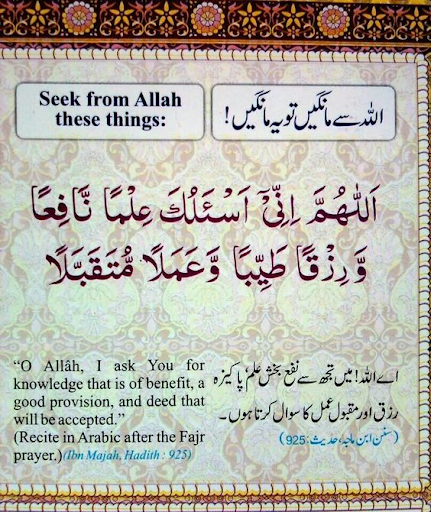 Seek from Allah
these things:
اللہ سے مانگیں تو یہ مانگیں!
اَللّٰهُمَّ اِنِّیْۤ اَسْئَلُكَ عِلْمًا نَّافِعًا
وَّرِزْقًا طَيِّبًا وَّعَمَلًا مُّتَقَبَّلًا
“O Allâh, I ask You for
knowledge that is of benefit, a
good provision, and deed that
will be accepted.”
(Recite in Arabic after the Fajr
prayer.) (Ibn Majah, Hadith : 925)
اے اللہ! میں تجھ سے نفع بخش علم، پاکیزہ
رزق اور مقبول عمل کا سوال کرتا ہوں۔
(سنن ابن ماجہ، حدیث: 925)